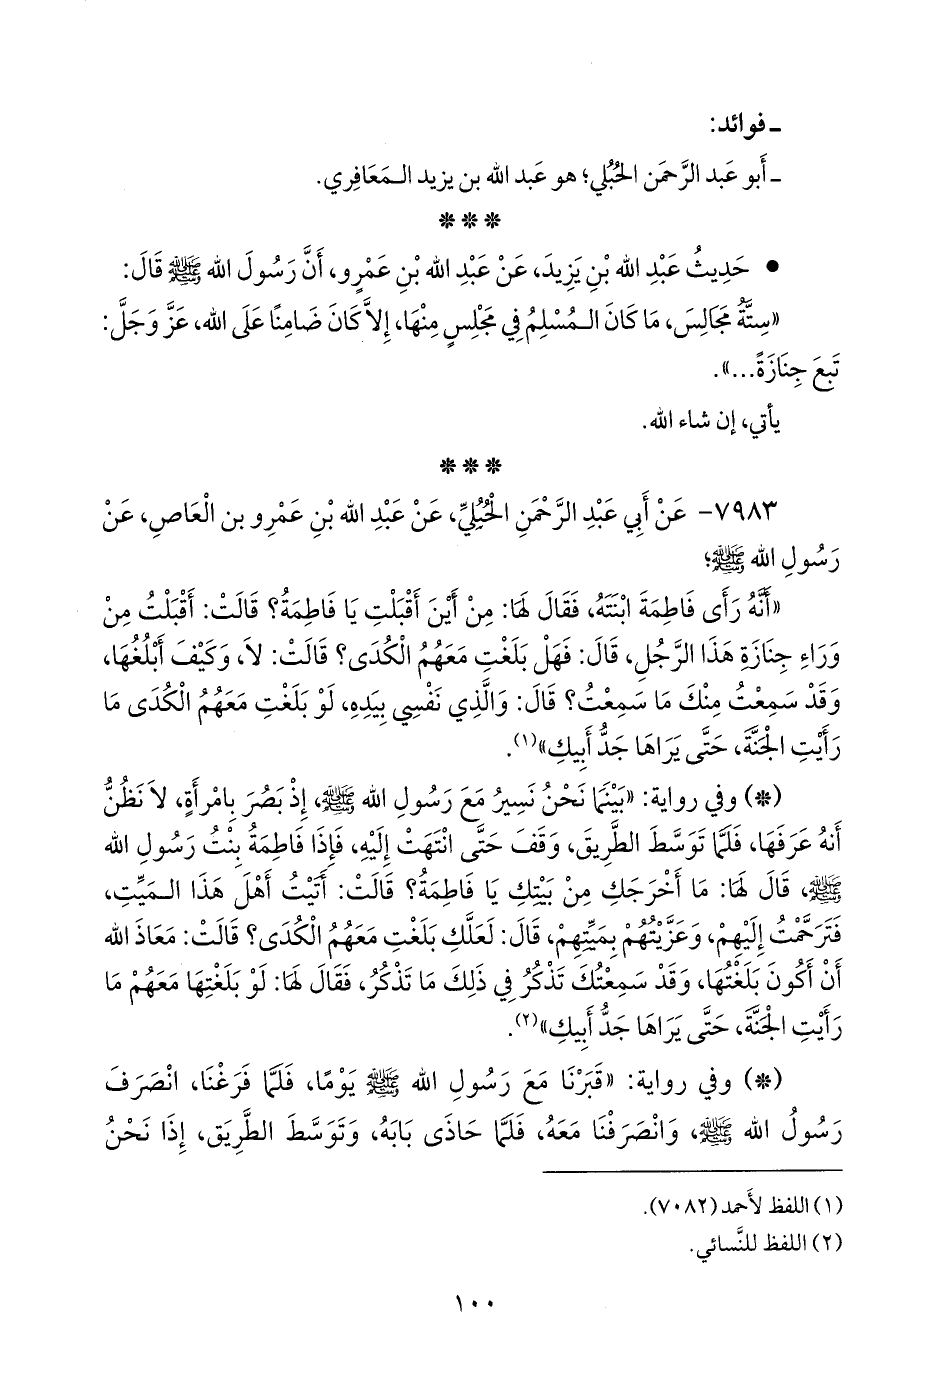 ـ فوائد:
ـ أَبو عَبد الرَّحمَن الحُبُلي؛ هو عَبد الله بن يزيد الـمَعَافِري.
***
• حَدِيثُ عَبْدِ الله بْنِ يَزِيدَ، عَنْ عَبْدِ الله بْنِ عَمْرٍو، أَنَّ رَسُولَ الله ﷺ قَالَ:
«سِتَّةُ مَجَالِسَ، مَا كَانَ الـمُسْلِمُ فِي مَجْلِسٍ مِنْهَا، إِلاَّ كَانَ ضَامِنًا عَلَى الله، عَزَّ وَجَلَّ:
تَبِعَ جِنَازَةً...».
يأتي، إن شاء الله.
***
٧٩٨٣- عَنْ أَبِي عَبْدِ الرَّحْمَنِ الْحُبُلِيِّ، عَنْ عَبْدِ الله بْنِ عَمْرِو بن الْعَاصِ، عَنْ
رَسُولِ الله ﷺ؛
«أَنَّهُ رَأَى فَاطِمَةَ ابْنَتَهُ، فَقَالَ لَهَا: مِنْ أَيْنَ أَقْبَلْتِ يَا فَاطِمَةُ؟ قَالَتْ: أَقْبَلْتُ مِنْ
وَرَاءِ جِنَازَةِ هَذَا الرَّجُلِ، قَالَ: فَهَلْ بَلَغْتِ مَعَهُمُ الْكُدَى؟ قَالَتْ: لاَ، وَكَيْفَ أَبْلُغُهَا،
وَقَدْ سَمِعْتُ مِنْكَ مَا سَمِعْتُ؟ قَالَ: وَالَّذِي نَفْسِي بِيَدِهِ، لَوْ بَلَغْتِ مَعَهُمُ الْكُدَى مَا
رَأَيْتِ الْجَنَّةَ، حَتَّى يَرَاهَا جَدُّ أَبِيكِ»(١).
(*) وفي رواية: «بَيْنَمَا نَحْنُ نَسِيرُ مَعَ رَسُولِ الله ﷺ، إِذْ بَصُرَ بِامْرأَةٍ، لاَ نَظُنُّ
أَنهُ عَرَفَهَا، فَلَمَّا تَوَسَّطَ الطَّرِيقَ، وَقَفَ حَتَّى انْتَهَتْ إِلَيْهِ، فَإِذَا فَاطِمَةُ بِنْتُ رَسُولِ الله
ﷺ، قَالَ لَهَا: مَا أَخْرَجَكِ مِنْ بَيْتِكِ يَا فَاطِمَةُ؟ قَالَتْ: أَتَيْتُ أَهْلَ هَذَا الـمَيِّتِ،
فَتَرَحَّمْتُ إِلَيْهِمْ، وَعَزَّيْتُهُمْ بِمَيِّتِهِمْ، قَالَ: لَعَلَّكِ بَلَغْتِ مَعَهُمُ الْكُدَى؟ قَالَتْ: مَعَاذَ الله
أَنْ أَكُونَ بَلَغْتُهَا، وَقَدْ سَمِعْتُكَ تَذْكُرُ فِي ذَلِكَ مَا تَذْكُرُ، فَقَالَ لَهَا: لَوْ بَلَغْتِهَا مَعَهُمْ مَا
رَأَيْتِ الْجَنَّةَ، حَتَّى يَرَاهَا جَدُّ أَبِيكِ»(٢).
(*) وفي رواية: «قَبَرْنَا مَعَ رَسُولِ الله ﷺ يَوْمًا، فَلَمَّا فَرَغْنَا، انْصَرَفَ
رَسُولُ الله ﷺ، وَانْصَرَفْنَا مَعَهُ، فَلَمَّا حَاذَى بَابَهُ، وَتَوَسَّطَ الطَّرِيقَ، إِذَا نَحْنُ
(١) اللفظ لأَحمد (٧٠٨٢).
(٢) اللفظ للنَّسائي.
١٠٠